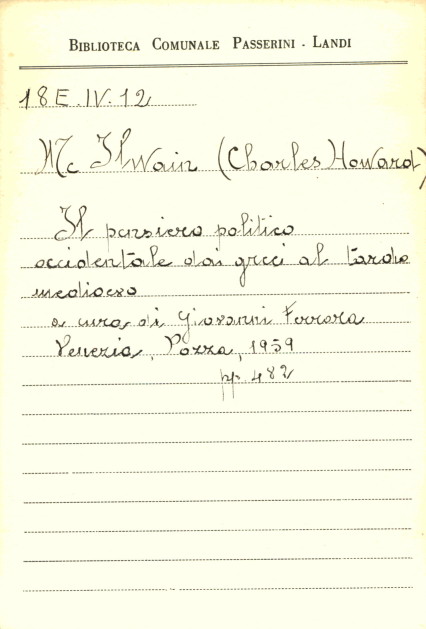 BIBLIOTECA COMUNALE PASSERINI - LANDI
18E.IV.12
Mc Ilwain (Charles Howard)
Il pensiero politico
occidentale dai greci al tardo
medioevo
a cura di Giovanni Ferrara
Venezia, Pozza, 1959
pp. 482